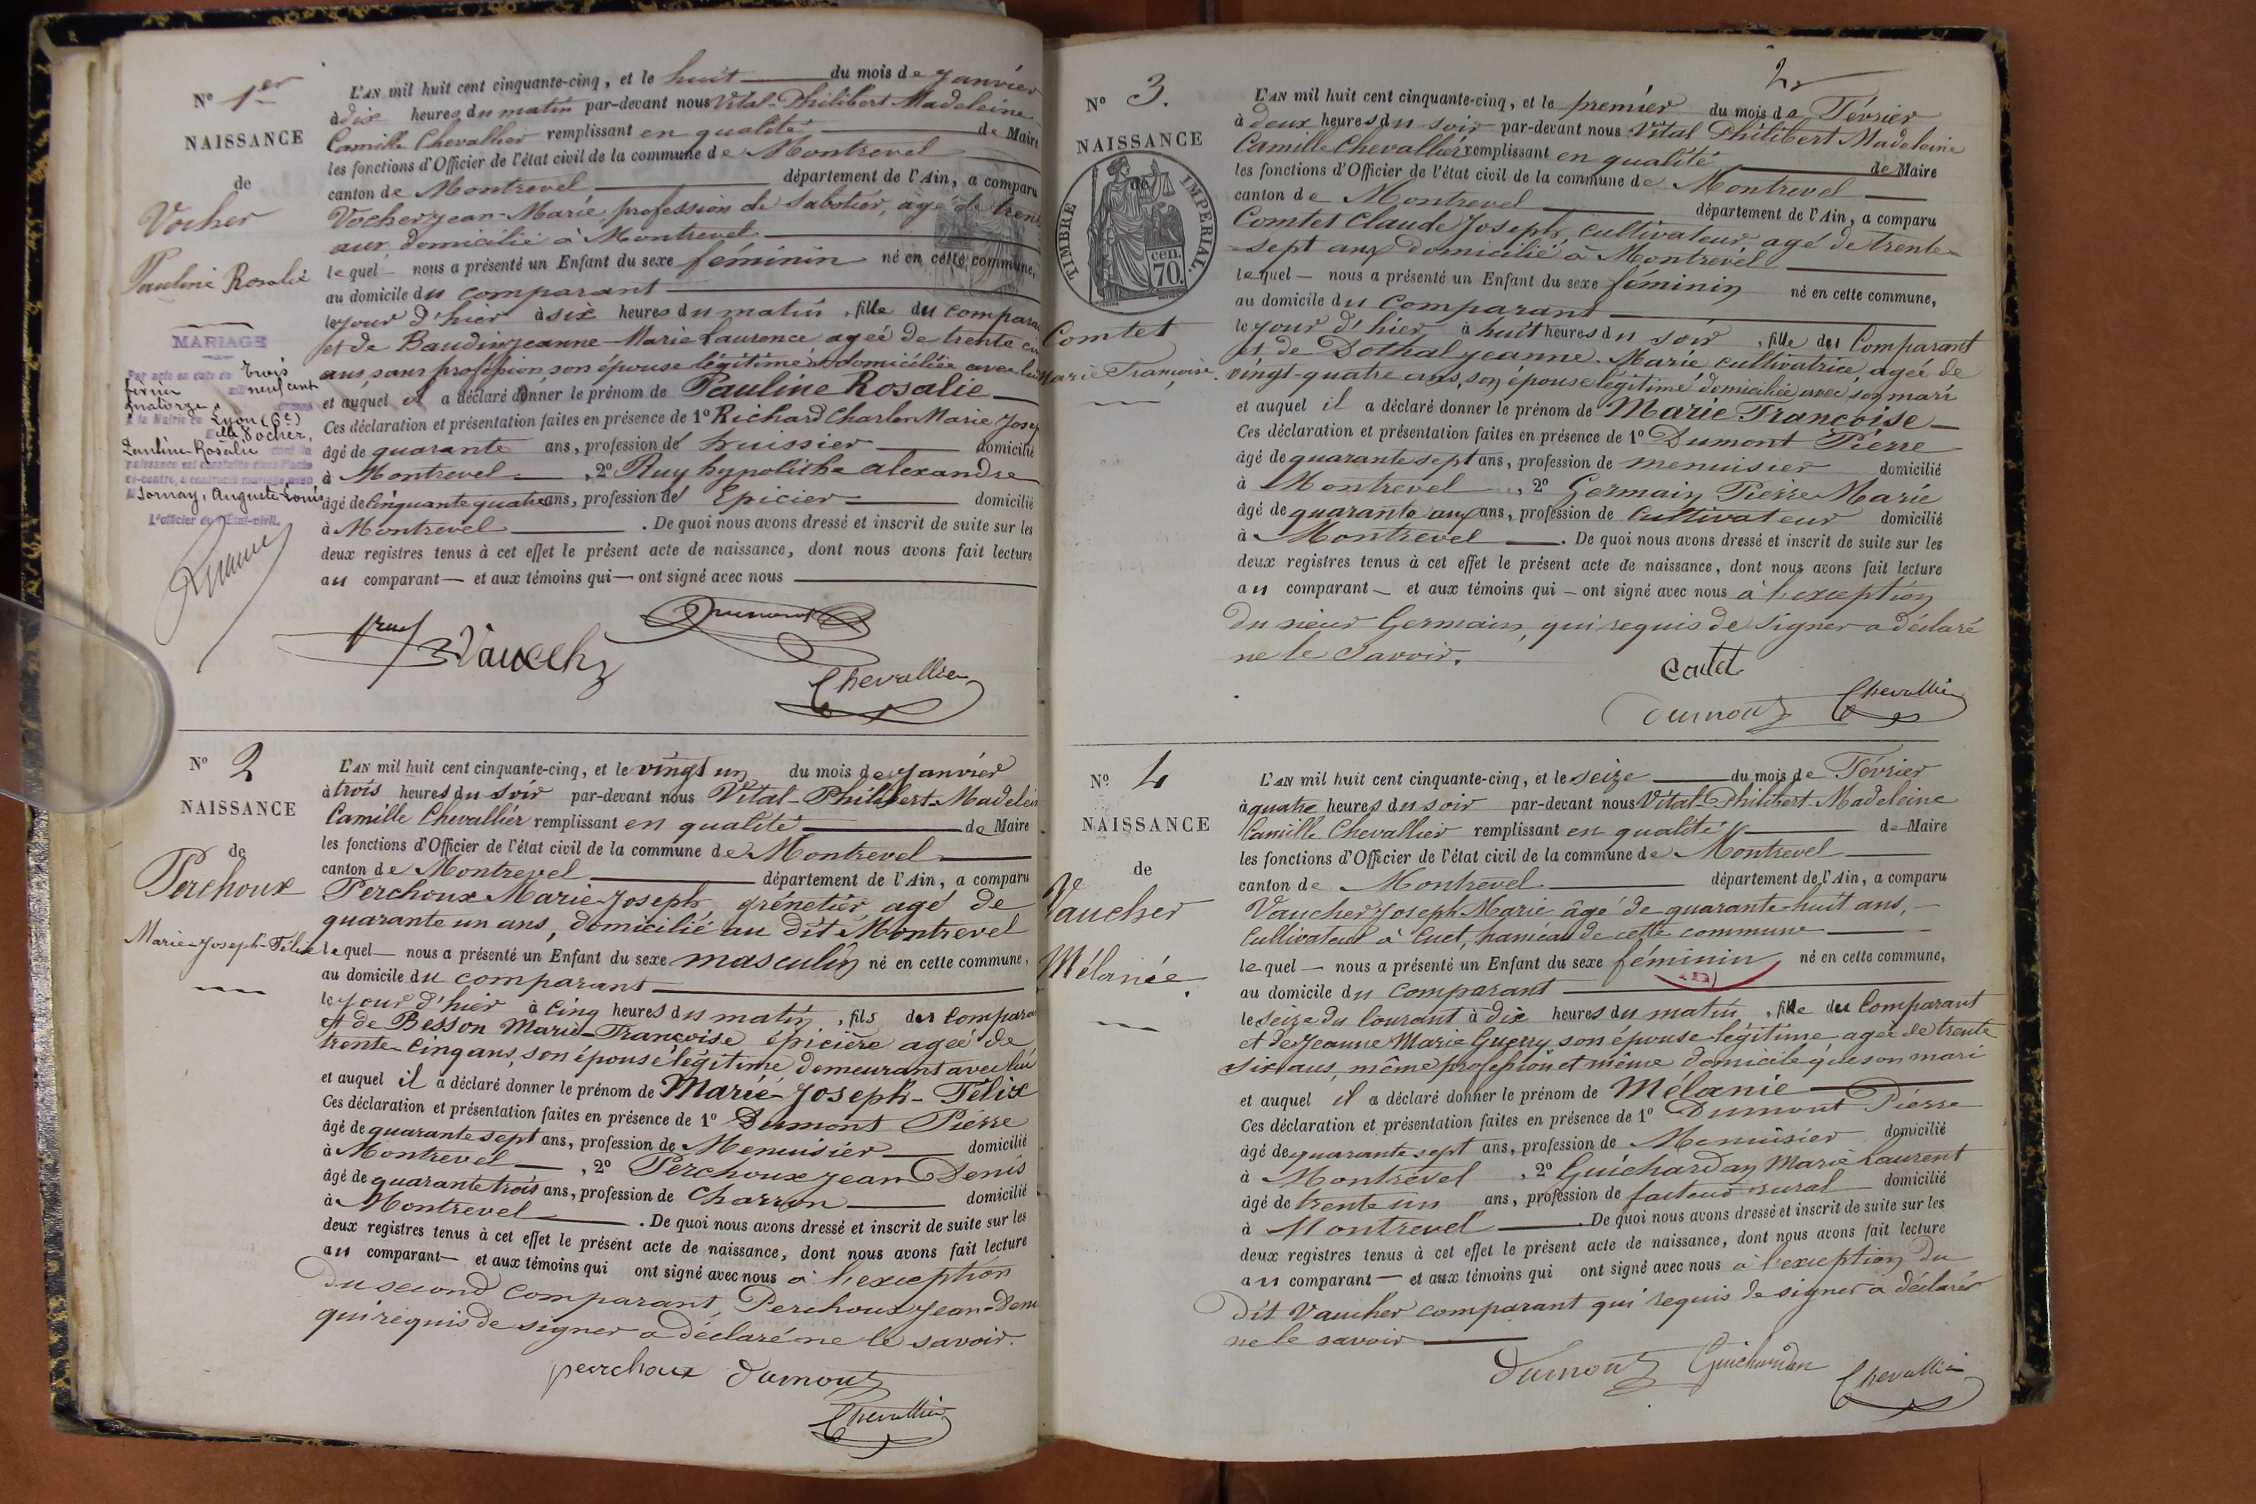 N° 1er
NAISSANCE
de
Vocher
Pauline Rosalie
MARIAGE
Par acte en date du trois
février mil neuf cent
quatorze
à la Mairie de Lyon (6e)
elle Vocher,
Pauline Rosalie dont la
naissance est constatée dans l'acte
ci-contre, a contracté mariage avec
Sornay, Auguste Louis
L'officier de l'État-civil.
L'AN mil huit cent cinquante-cinq, et le huit du mois de Janvier
à dix heures du matin par-devant nous Vital-Philibert Madeleine
Camille Chevallier remplissant en qualité de Maire
les fonctions d'Officier de l'état civil de la commune de Montrevel
canton de Montrevel département de l'Ain, a comparu
Vocher Jean-Marie profession de Sabotier, agé de trente
ans, domicilié à Montrevel
lequel nous a présenté un Enfant du sexe féminin né en cette commune,
au domicile du comparant
le jour d'hier à six heures du matin, fille du comparant
et de Baudin Jeanne-Marie Laurence agée de trente
ans, sans profession son épouse légitime domiciliée avec lui
et auquel il a déclaré donner le prénom de Pauline Rosalie
Ces déclaration et présentation faites en présence de 1° Richard Charles Marie Josep
âgé de quarante ans, profession de huissier domicilié
à Montrevel, 2° Ruy hypolithe alexandre
âgé de Cinquante quatre ans, profession de Epicier domicilié
à Montrevel. De quoi nous avons dressé et inscrit de suite sur les
deux registres tenus à cet effet le présent acte de naissance, dont nous avons fait lecture
au comparant et aux témoins qui ont signé avec nous
Chevallier
N° 2
NAISSANCE
de
Perchoux
Marie-Joseph-Félix
L'AN mil huit cent cinquante-cinq, et le vingt un du mois de Janvier
à trois heures du soir par-devant nous Vital-Philibert-Madelei
Camille Chevallier remplissant en qualité de Maire
les fonctions d'Officier de l'état civil de la commune de Montrevel
canton de Montrevel département de l'Ain, a comparu
Perchoux Marie-Joseph grénetier agé de
quarante un ans, domicilié au dit Montrevel
lequel nous a présenté un Enfant du sexe masculin né en cette commune,
au domicile du comparant
le jour d'hier à cinq heures du matin, fils du Compara
et de Besson Marie-Françoise épicière agée de
trente-cinq ans, son épouse légitime demeurant avec lui
et auquel il a déclaré donner le prénom de Marie-Joseph-Félix
Ces déclaration et présentation faites en présence de 1° Dumont Pierre
âgé de quarante sept ans, profession de Menuisier domicilié
à Montrevel, 2° Perchoux Jean Denis
âgé de quarante trois ans, profession de Charron domicilié
à Montrevel. De quoi nous avons dressé et inscrit de suite sur les
deux registres tenus à cet effet le présent acte de naissance, dont nous avons fait lecture
au comparant et aux témoins qui ont signé avec nous à l'exception
du second comparant, Perchoux Jean-Deni
qui requis de signer a déclaré ne le savoir.
perchoux Dumont
Chevallier
2
N° 3.
NAISSANCE
de
TIMBRE IMPERIAL.
cen. 70.
Comtet
Marie Françoise.
L'AN mil huit cent cinquante-cinq, et le premier du mois de Février
à deux heures du soir par-devant nous Vital Philibert Madeleine
Camille Chevallier remplissant en qualité de Maire
les fonctions d'Officier de l'état civil de la commune de Montrevel
canton de Montrevel département de l'Ain, a comparu
Comtet Claude Joseph, cultivateur, agé de trente-
sept ans, domicilié à Montrevel
lequel nous a présenté un Enfant du sexe féminin né en cette commune,
au domicile du comparant
le jour d'hier, à huit heures du soir, fille du Comparant
et de Dothal Jeanne-Marie cultivatrice agée de
vingt-quatre ans, son épouse légitime domiciliée avec son mari
et auquel il a déclaré donner le prénom de Marie Françoise
Ces déclaration et présentation faites en présence de 1° Dumont Pierre
âgé de quarante sept ans, profession de menuisier domicilié
à Montrevel, 2° Germain Pierre Marie
âgé de quarante ans ans, profession de Cultivateur domicilié
à Montrevel. De quoi nous avons dressé et inscrit de suite sur les
deux registres tenus à cet effet le présent acte de naissance, dont nous avons fait lecture
au comparant et aux témoins qui ont signé avec nous à l'exception
du sieur Germain, qui requis de signer a déclaré
ne le savoir.
Chevallier
Dumont
N° 4
NAISSANCE
de
Vaucher
Mélanie.
L'AN mil huit cent cinquante-cinq, et le seize du mois de Février
à quatre heures du soir par-devant nous Vital-Philibert-Madeleine
Camille Chevallier remplissant en qualité de Maire
les fonctions d'Officier de l'état civil de la commune de Montrevel
canton de Montrevel département de l'Ain, a comparu
Vaucher Joseph Marie âgé de quarante-huit ans,
Cultivateur à Cuet, haméau de cette commune
lequel nous a présenté un Enfant du sexe féminin né en cette commune,
au domicile du comparant
le seize du Courant à dix heures du matin, fille du Comparant
et de Jeanne Marie Guerry son épouse légitime agée de trente
six ans, même profession et même domicile que son mari
et auquel il a déclaré donner le prénom de Mélanie
Ces déclaration et présentation faites en présence de 1° Dumont Pierre
âgé de quarante sept ans, profession de Menuisier domicilié
à Montrevel, 2° Guichardan Marie Laurent
âgé de trente un ans, profession de facteur rural domicilié
à Montrevel. De quoi nous avons dressé et inscrit de suite sur les
deux registres tenus à cet effet le présent acte de naissance, dont nous avons fait lecture
au comparant et aux témoins qui ont signé avec nous à l'exception du
dit Vaucher comparant qui requis de signer a déclaré
ne le savoir
Dumont Guichardan Chevallier